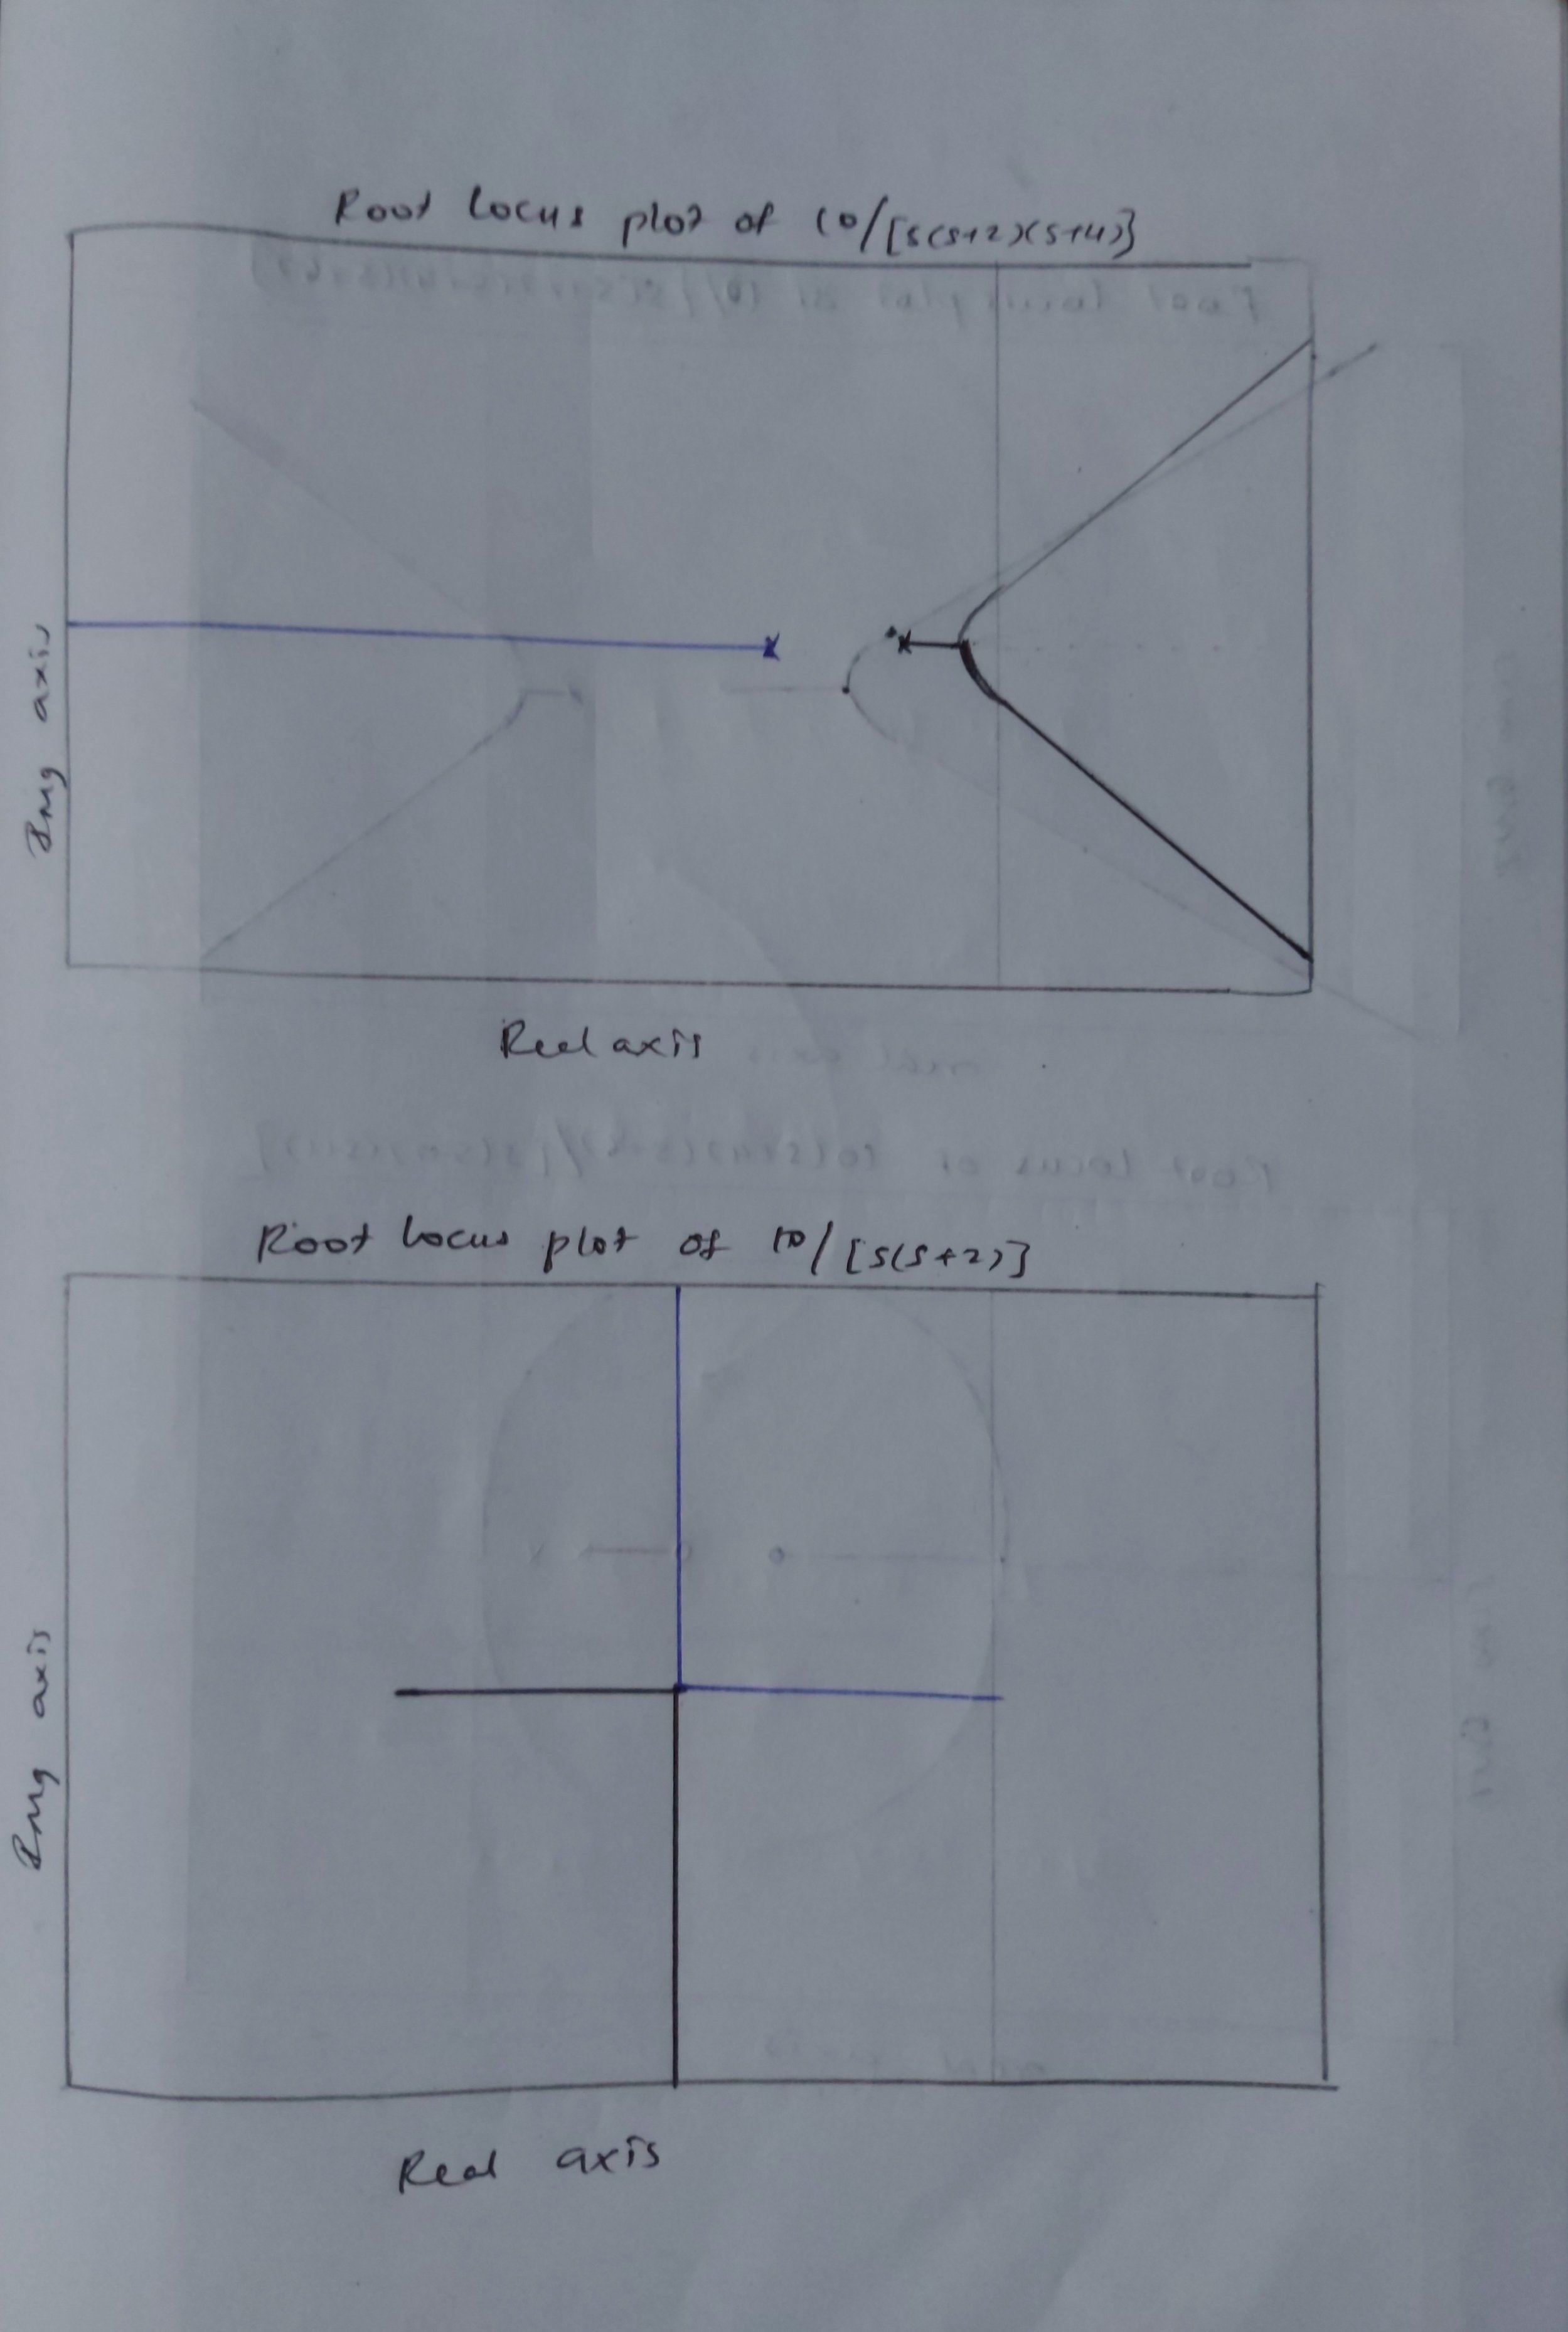 Root locus plot of 10/[s(s+2)(s+4)]
Img axis
Real axis
Root locus plot of 10/[s(s+2)]
Img axis
Real axis